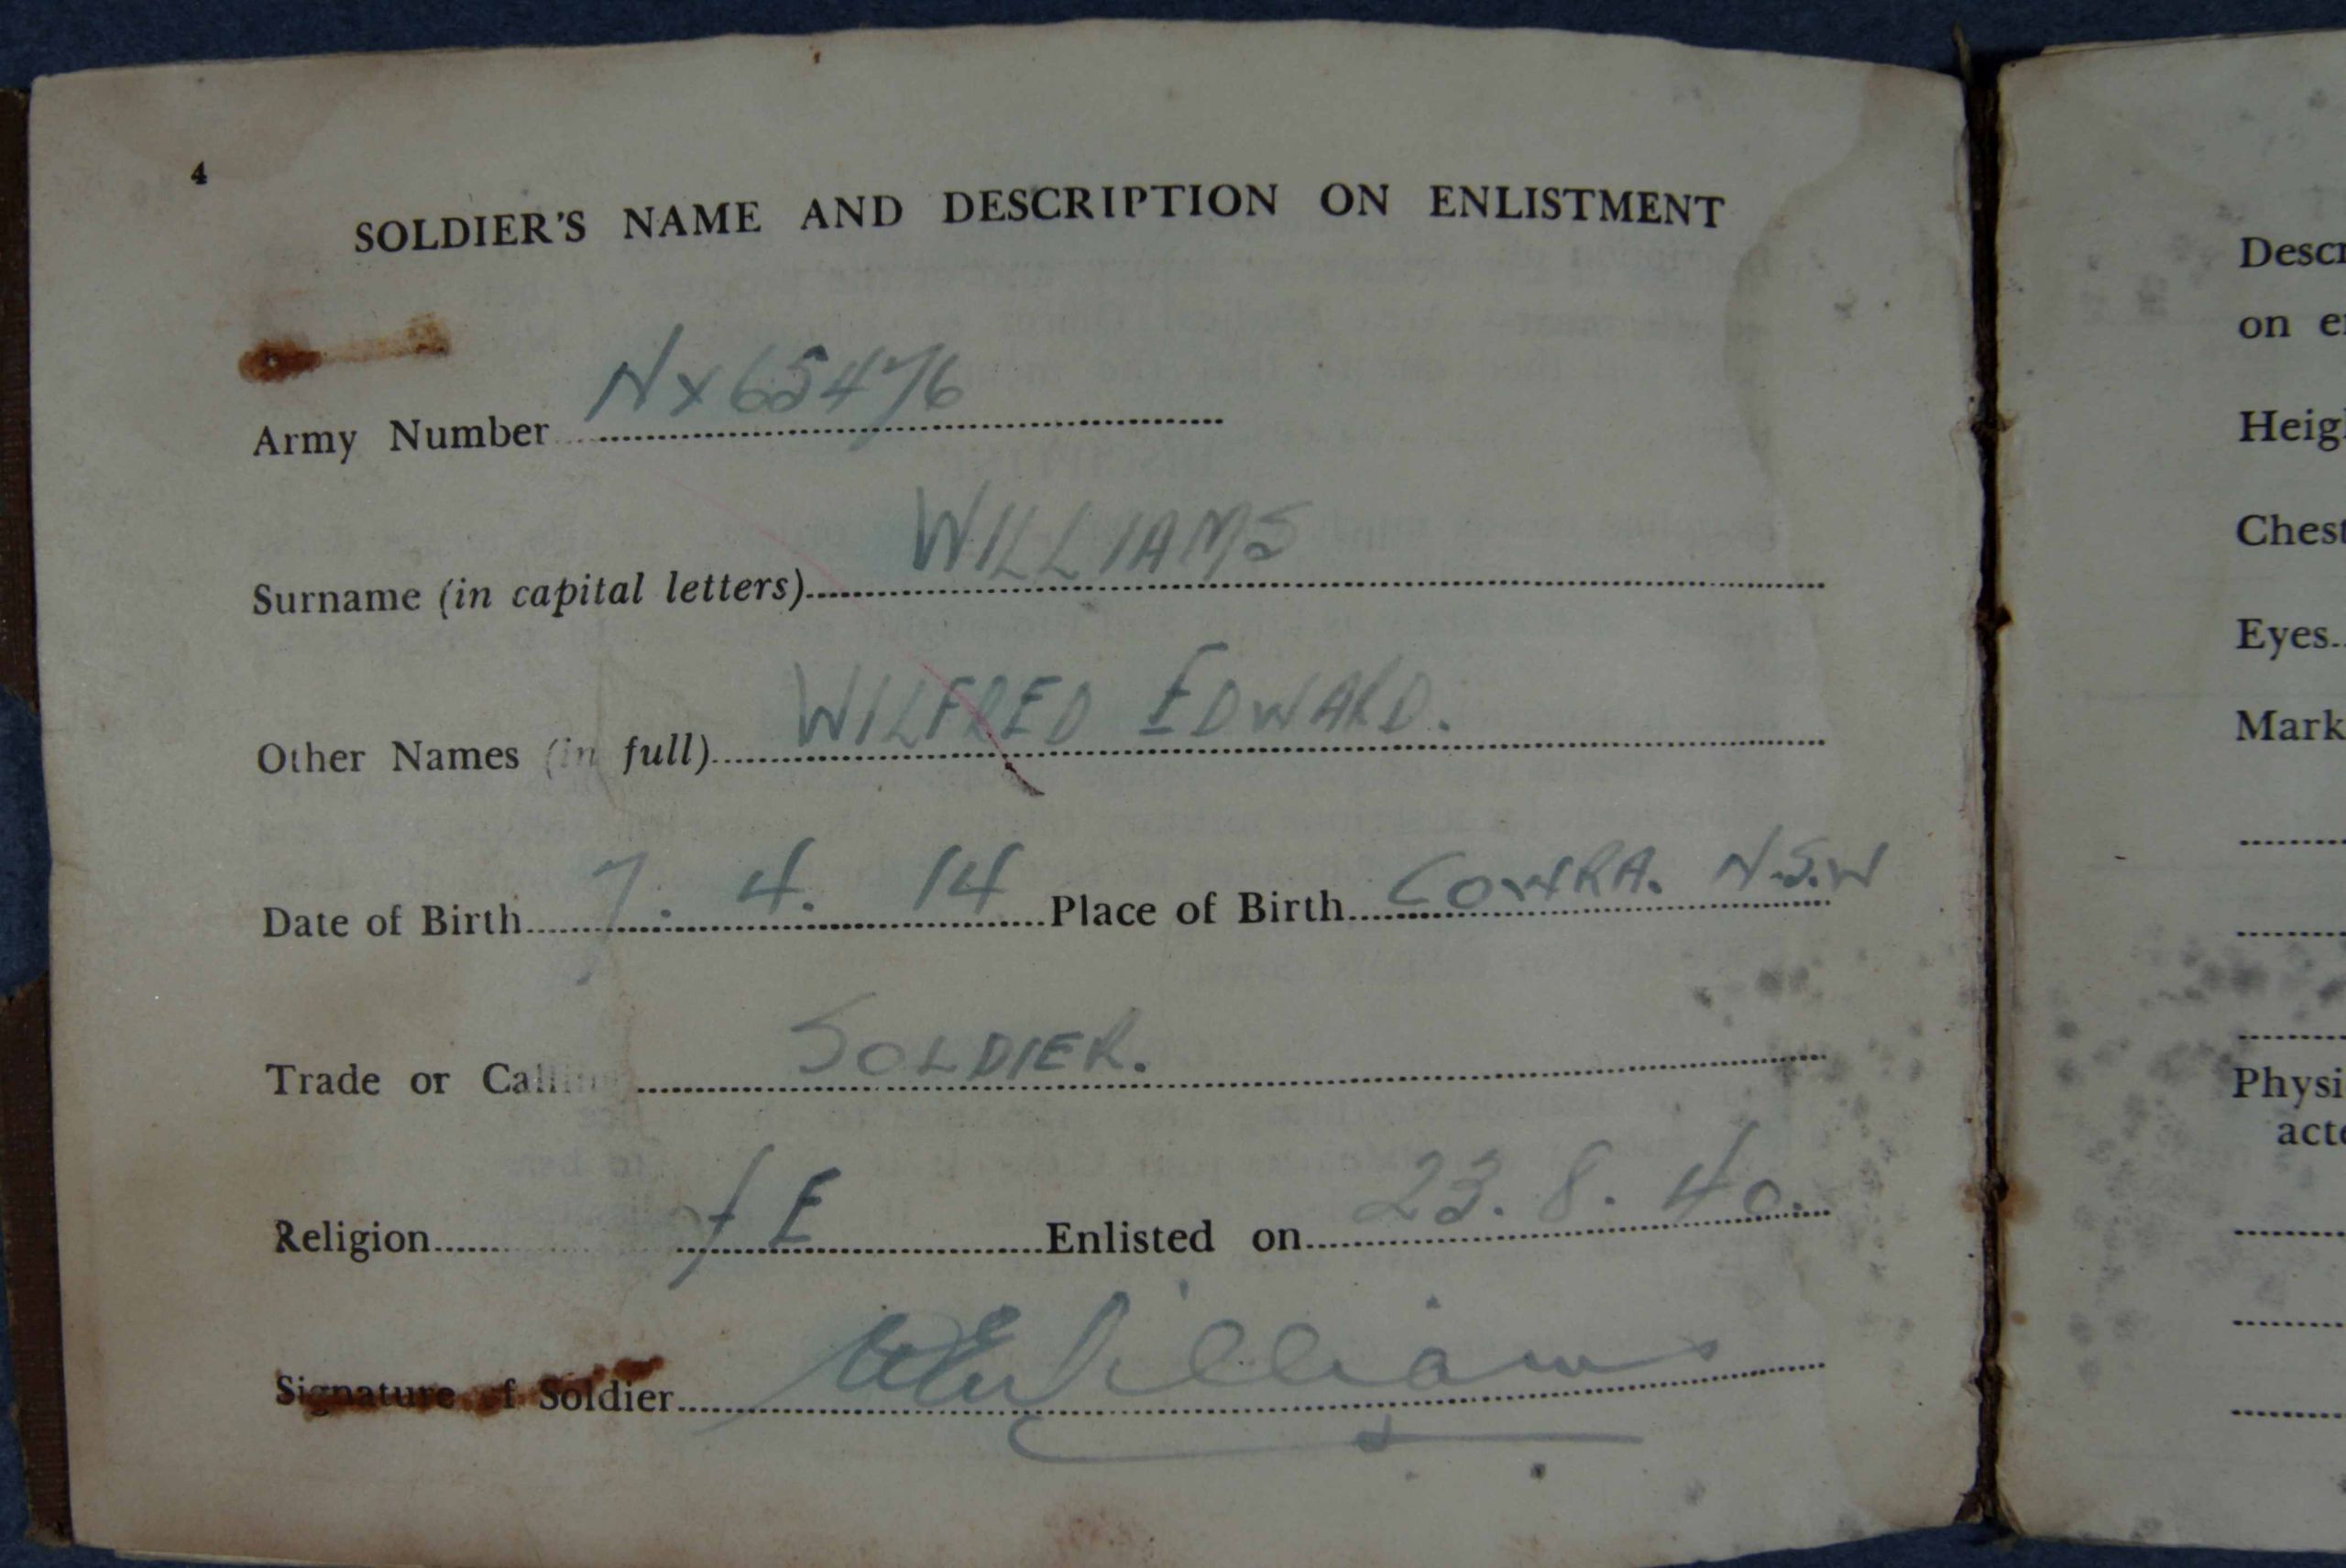 4
SOLDIER'S NAME AND DESCRIPTION ON ENLISTMENT
Army Number NX65476
Surname (in capital letters) WILLIAMS
Other Names (in full) WILFRED EDWARD.
Date of Birth 7. 4. 14 Place of Birth COWRA. N.S.W
Trade or Calling SOLDIER.
Religion of E Enlisted on 23.8.40.
Signature of Soldier WEWilliams
Descr
on e
Heigh
Chest
Eyes
Mark
Physi
acte